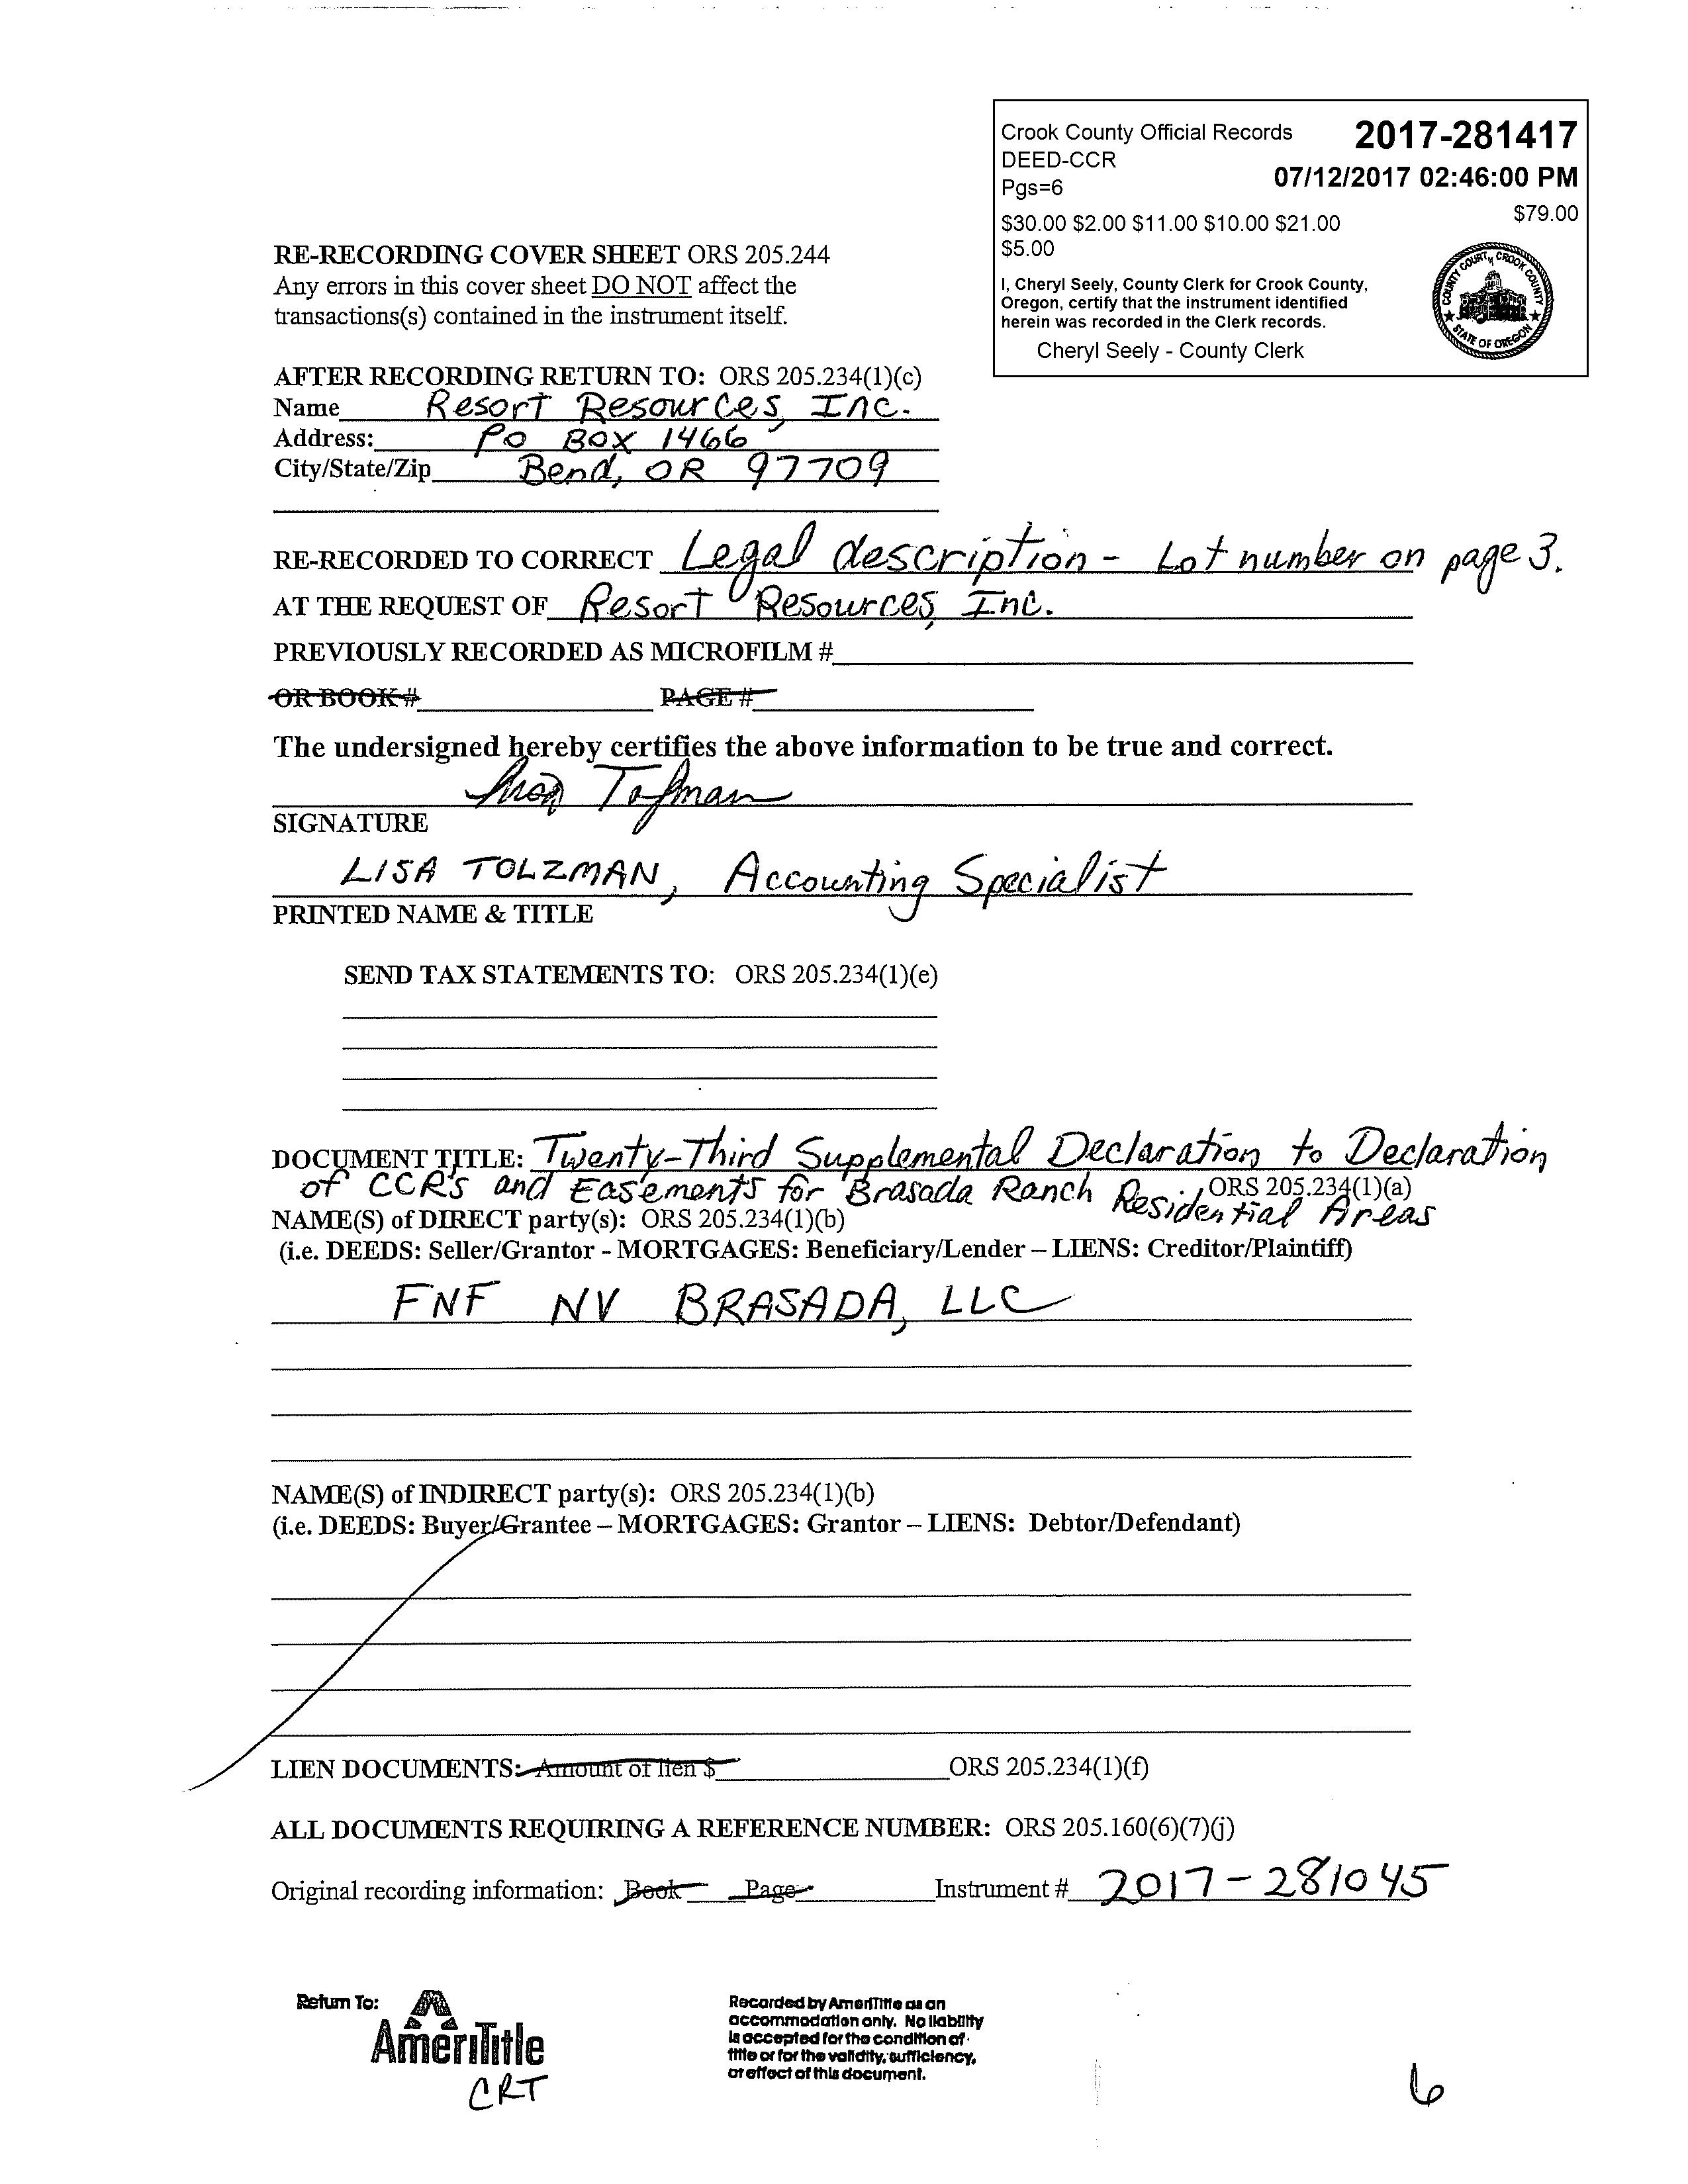 Crook County Official Records 2017-281417
DEED-CCR
Pgs=6 07/12/2017 02:46:00 PM
$30.00 $2.00 $11.00 $10.00 $21.00 $79.00
$5.00
I, Cheryl Seely, County Clerk for Crook County,
Oregon, certify that the instrument identified
herein was recorded in the Clerk records.
Cheryl Seely - County Clerk
COUNTY COURT of CROOK COUNTY
STATE OF OREGON
RE-RECORDING COVER SHEET ORS 205.244
Any errors in this cover sheet DO NOT affect the
transactions(s) contained in the instrument itself.
AFTER RECORDING RETURN TO: ORS 205.234(1)(c)
Name Resort Resources, Inc.
Address: PO BOX 1466
City/State/Zip Bend, OR 97709
RE-RECORDED TO CORRECT Legal description - Lot number on page 3.
AT THE REQUEST OF Resort Resources, Inc.
PREVIOUSLY RECORDED AS MICROFILM #
OR BOOK # PAGE #
The undersigned hereby certifies the above information to be true and correct.
Lisa Tolzman
SIGNATURE
LISA TOLZMAN, Accounting Specialist
PRINTED NAME & TITLE
SEND TAX STATEMENTS TO: ORS 205.234(1)(e)
DOCUMENT TITLE: Twenty-Third Supplemental Declaration to Declaration
of CCR's and Easements for Brasada Ranch Residential Areas
ORS 205.234(1)(a)
NAME(S) of DIRECT party(s): ORS 205.234(1)(b)
(i.e. DEEDS: Seller/Grantor - MORTGAGES: Beneficiary/Lender – LIENS: Creditor/Plaintiff)
FNF NV BRASADA, LLC
NAME(S) of INDIRECT party(s): ORS 205.234(1)(b)
(i.e. DEEDS: Buyer/Grantee – MORTGAGES: Grantor – LIENS: Debtor/Defendant)
LIEN DOCUMENTS: Amount of lien $ ORS 205.234(1)(f)
ALL DOCUMENTS REQUIRING A REFERENCE NUMBER: ORS 205.160(6)(7)(j)
Original recording information: Book Page Instrument # 2017-281045
Return To:
AmeriTitle
CRT
Recorded by AmeriTitle as an
accommodation only. No liability
is accepted for the condition of
title or for the validity, sufficiency,
or effect of this document.
6